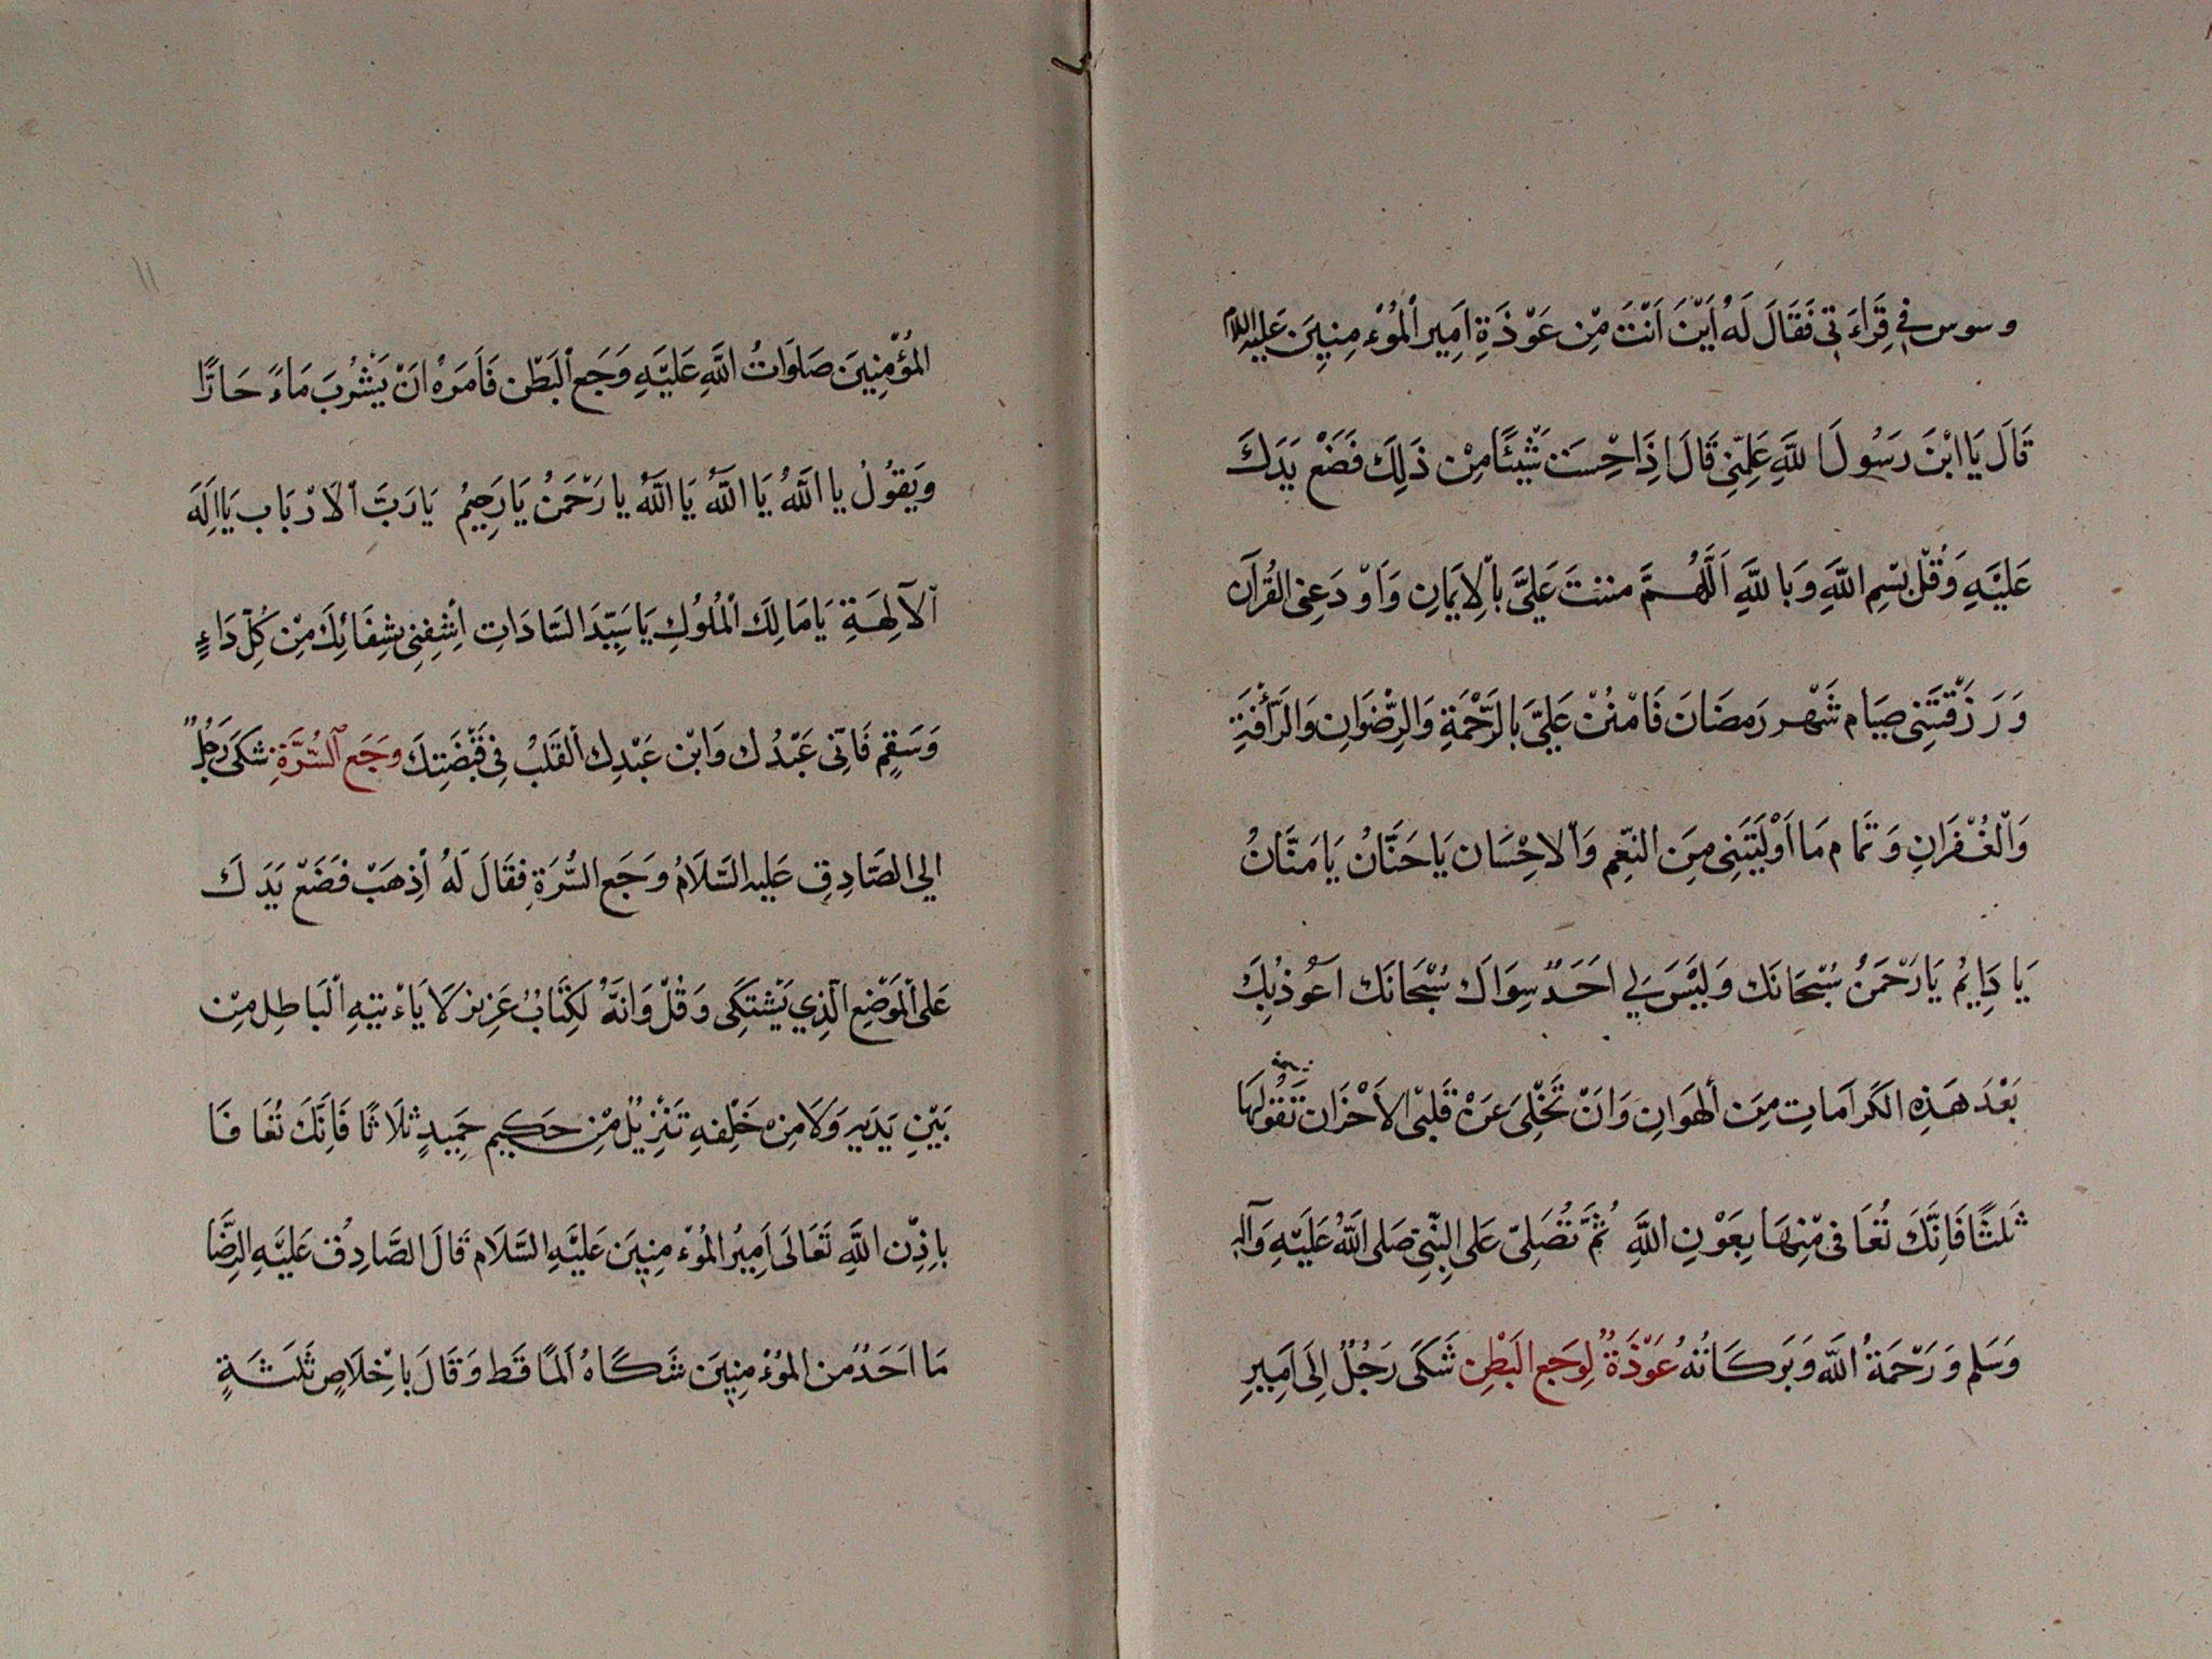 وسوس في قِرَاءَتي فَقَالَ لَهُ اَيْنَ اَنْتَ مِنْ عَوْذَةِ اَمِيرِ الْمُوْءمِنِينَ عَلَيْهِ السَّلَام
قَالَ يَا ابْنَ رَسُولَ اللَّهِ عَلِّمْنِي قَالَ اِذَا حْسِسَتْ شَيْئًا مِنْ ذَلِكَ فَضَعْ يَدَكَ
عَلَيْهِ وَقُلْ بِسْمِ اللَّهِ وَبِاللَّهِ اَللَّهُمَّ مننتَ عَلَيَّ بِالْاِيمَانِ وَاَوْدَعْتَنِي الْقُرْآنَ
وَرَزَقْتَنِي صِيَام شَهْر رَمضَانَ فَامْنُنْ عَلَيَّ بِالرَّحْمَةِ وَالرِّضْوَانِ وَالرَّأْفَةِ
وَالْغُفْرَانِ وَتَمَام مَا اَوْلَيْتَنِي مِنَ النِّعَمِ وَالْاحْسَان يَا حَنَّانُ يَا مَنَّانُ
يَا دَايِمُ يَا رَحْمَنُ سُبْحَانَك وَلَيْسَ لِي اَحَدٌ سِوَاكَ سُبْحَانَكَ اَعُوذُ بِكَ
بَعْدَ هَذِهِ الكَرَامَاتِ مِنَ الْهَوَانِ وَاَنْ تَجْلِيَ عَنْ قَلْبِي الْاَحْزَان تَقُولُهَا
ثَلثًا فَاِنَّكَ تُعَافى مِنْهَا بِعَوْنِ اللَّهِ ثُمَّ تُصَلِّي عَلَى النَّبِيّ صَلى اللَّهُ عَلَيْهِ وَآلِهِ
وَسَلم وَرَحْمَةُ اللَّه وَبَرَكَاتُهُ عَوْذَةٌ لِوَجَعِ الْبَطْنِ شَكَى رَجُلٌ اِلَى اَمِيرِ
الْمُؤْمِنِينَ صَلَوَاتُ اللَّهِ عَلَيْهِ وَجَعَ الْبَطْنِ فَاَمَرَهُ اَنْ يَشْرُبَ مَاءً حَارًّا
وَيَقُولُ يا اللَّهُ يَا اللَّهُ يَا اللَّهُ يا رَحْمَنُ يَا رَحِيمُ يَا رَبَّ الْاَرْبَاب يَا اِلَهَ
الْآلِهَةِ يَا مَالِكَ الْمُلُوكِ يَا سَيِّدَ السَّادَاتِ اِشْفِنِي بِشِفَائِكَ مِنْ كُلِّ دَاءٍ
وَسَقِمٍ فَاِنِّي عَبْدُك وَابْن عَبْدِك الْقَلَبُ فِي قَبْضَتِكَ وَجَع السُّرَّةِ شَكَى رَجُلٌ
الى الصَّادِقِ عَلَيهِ السَّلَامُ وَجَعَ السُّرَةِ فَقَالَ لَهُ اْذِهَبْ فَضَعْ يَدَكَ
عَلَى الْمَوْضِعِ الَّذِي يَشْتَكِى وَقُلْ وَانَّهُ لَكِتَابٌ عَزِيز لَا يَاءْتِيهِ الْبَاطِل مِنْ
بَيْنِ يَدَيهِ وَلَا مِنْ خَلْفِهِ تَنْزِيلٌ مِنْ حَكِيم حَمِيدٍ ثلَاثًا فَاِنَّكَ تُعَافَا
بِاِذْنِ اللَّهِ تَعَالَى اَمِيرُ المُوْءمِنِينَ عَلَيْهِ السَّلَام قَالَ الصَّادِقُ عَلَيْهِ الرِّضَا
مَا اَحَدٌ من المُوْءمِنِينَ شَكَاهُ اَلَمًا قَط وَقَالَ بِاِخْلَاصٍ ثَلَثَةٍ